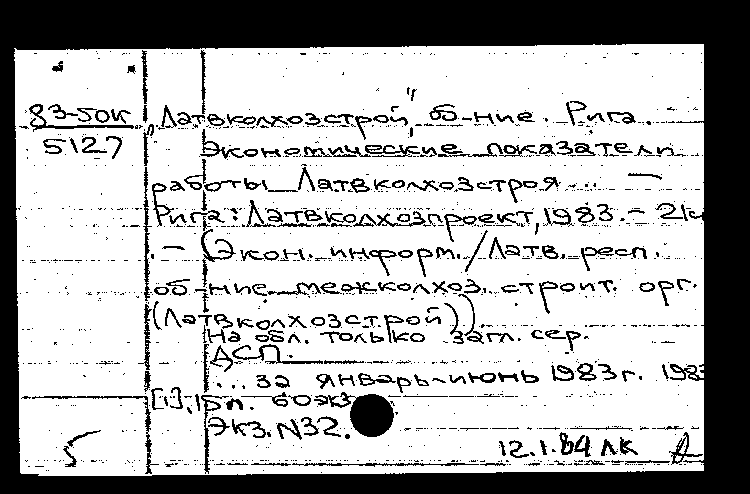 83-50к
5127
„Латвколхозстрой", об-ние. Рига.
Экономические показатели
работы Латвколхозстроя... —
Рига: Латвколхозпроект, 1983. – 21
. – (Экон. информ. / Латв. респ.
об-ние межколхоз. строит. орг.
(Латвколхозстрой))
На обл. только загл. сер.
ДСП.
...за январь-июнь 1983г. 1983
[1], 15 л. 60экз
Экз. N32.
5
12.1.84 лк